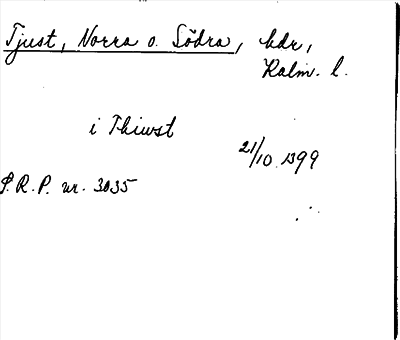 Tjust, Norra o. Södra, hdr,
Kalm. l.
i Thiwst
21/10 1399
S.R.P. nr. 3035